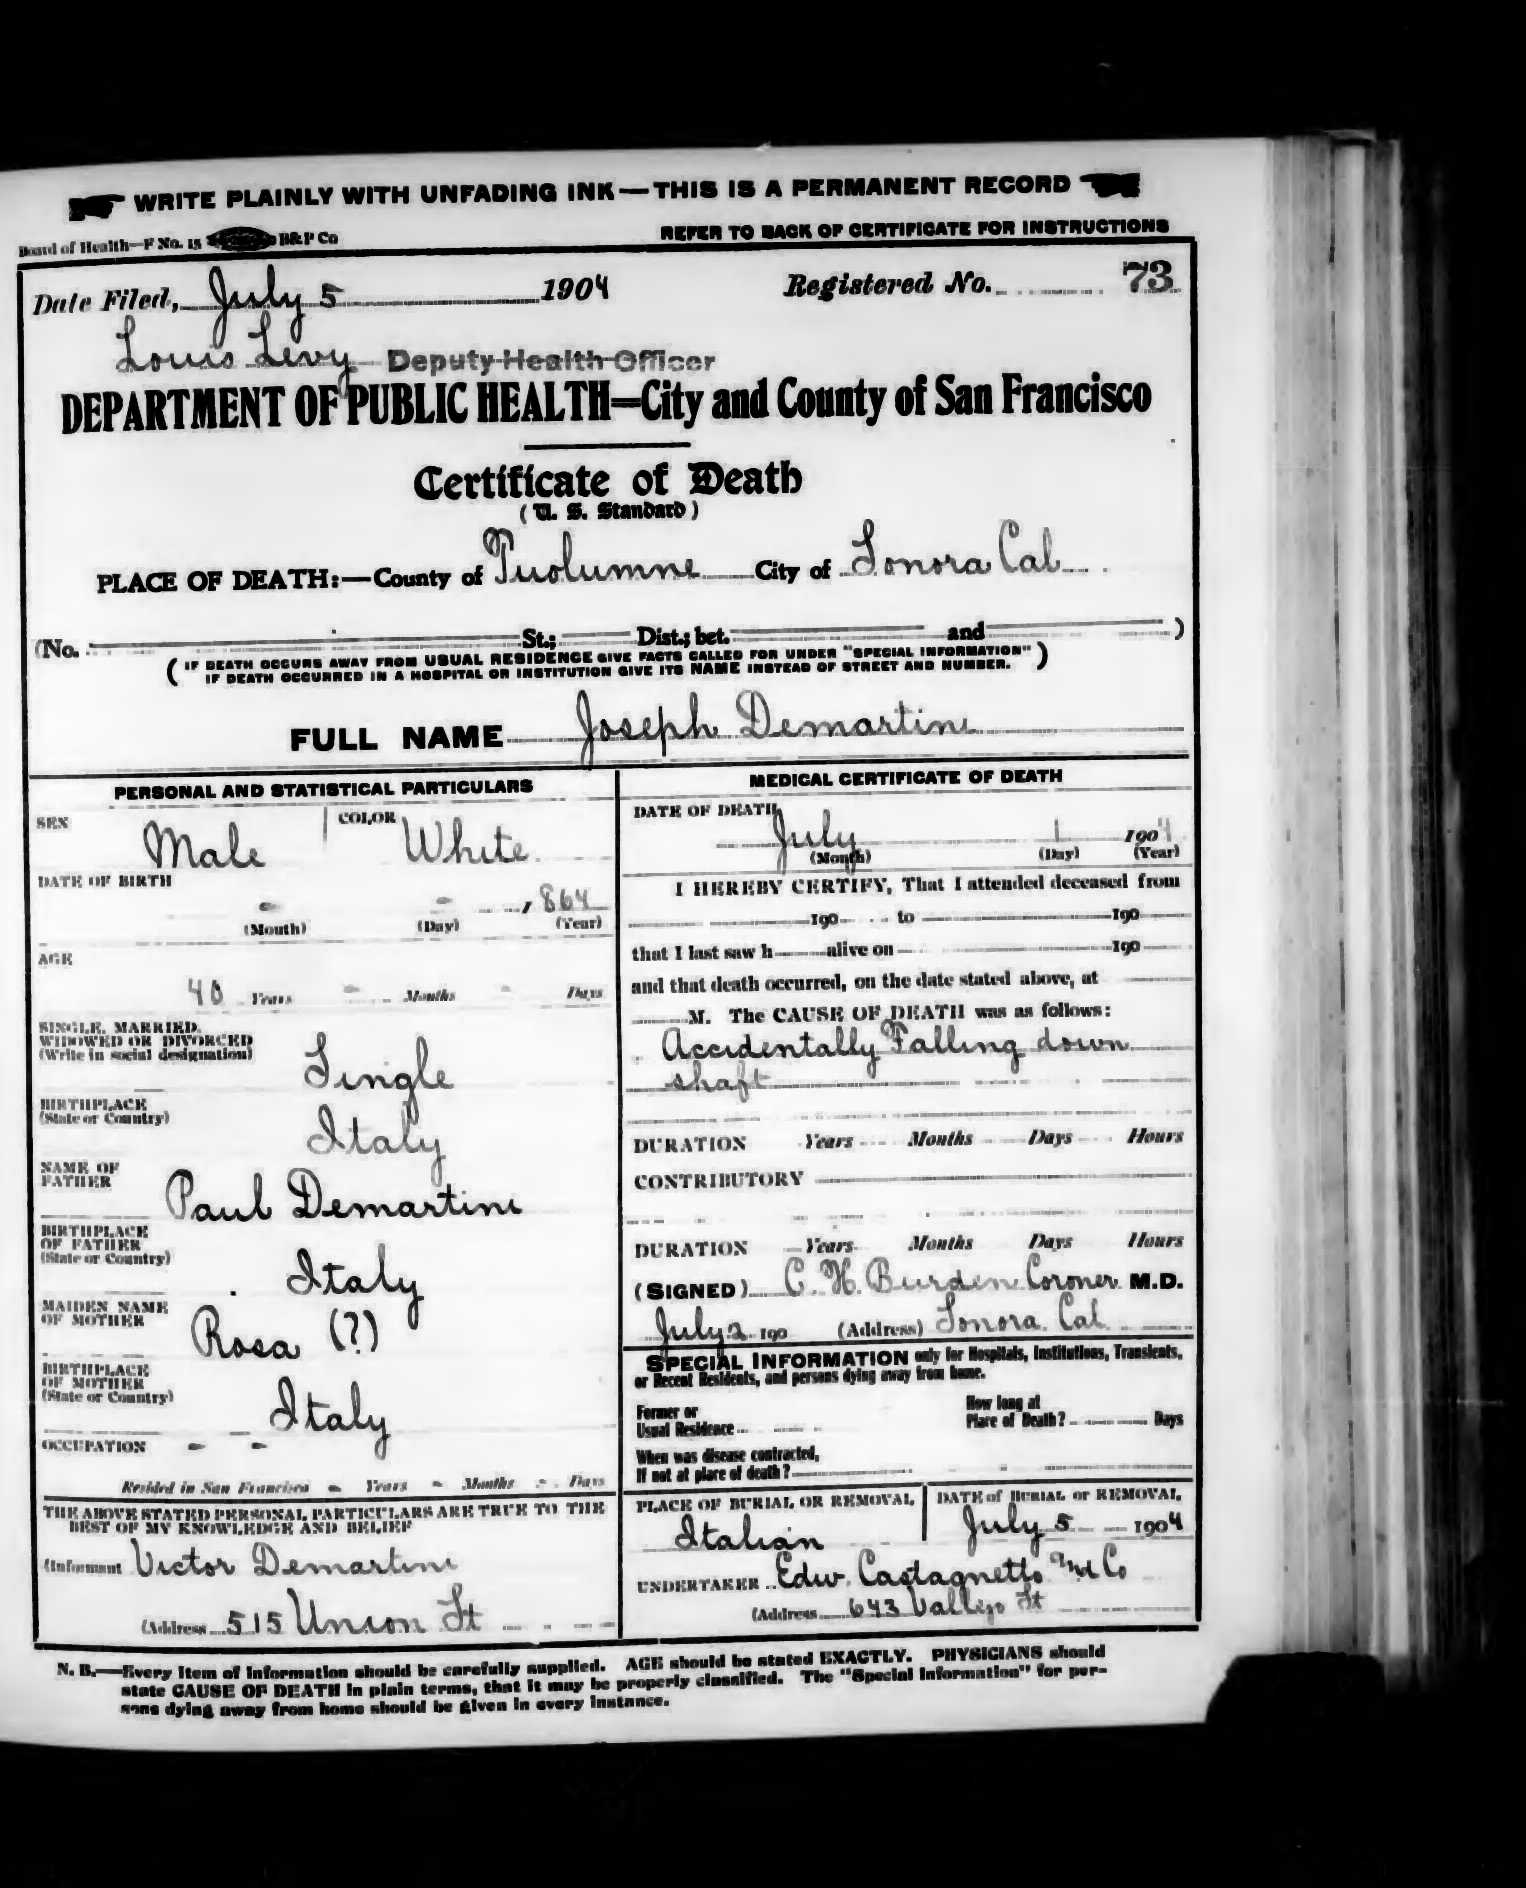 WRITE PLAINLY WITH UNFADING INK — THIS IS A PERMANENT RECORD
Board of Health—F No. 15 B&P Co
REFER TO BACK OF CERTIFICATE FOR INSTRUCTIONS
Date Filed, July 5 1904 Registered No. 73
Louis Levy Deputy Health Officer
DEPARTMENT OF PUBLIC HEALTH=City and County of San Francisco
Certificate of Death
(U. S. Standard)
PLACE OF DEATH:—County of Tuolumne City of Sonora Cal
(No. St.; Dist.; bet. and )
(IF DEATH OCCURS AWAY FROM USUAL RESIDENCE GIVE FACTS CALLED FOR UNDER "SPECIAL INFORMATION"
IF DEATH OCCURRED IN A HOSPITAL OR INSTITUTION GIVE ITS NAME INSTEAD OF STREET AND NUMBER.)
FULL NAME Joseph Demartini
PERSONAL AND STATISTICAL PARTICULARS
SEX Male COLOR White
DATE OF BIRTH
- - , 864
(Month) (Day) (Year)
AGE
40 Years - Months - Days
SINGLE, MARRIED,
WIDOWED OR DIVORCED
(Write in social designation)
Single
BIRTHPLACE
(State or Country)
Italy
NAME OF
FATHER
Paul Demartini
BIRTHPLACE
OF FATHER
(State or Country)
Italy
MAIDEN NAME
OF MOTHER
Rosa (?)
BIRTHPLACE
OF MOTHER
(State or Country)
Italy
OCCUPATION - -
Resided in San Francisco - Years - Months - Days
THE ABOVE STATED PERSONAL PARTICULARS ARE TRUE TO THE
BEST OF MY KNOWLEDGE AND BELIEF
(Informant Victor Demartini
(Address 515 Union St
MEDICAL CERTIFICATE OF DEATH
DATE OF DEATH
July 1 1904
(Month) (Day) (Year)
I HEREBY CERTIFY, That I attended deceased from
190 to 190
that I last saw h alive on 190
and that death occurred, on the date stated above, at
M. The CAUSE OF DEATH was as follows:
Accidentally Falling down
shaft
DURATION Years Months Days Hours
CONTRIBUTORY
DURATION Years Months Days Hours
(SIGNED) C. H. Burden Coroner M.D.
July 2 190 (Address) Sonora Cal
SPECIAL INFORMATION only for Hospitals, Institutions, Transients,
or Recent Residents, and persons dying away from home.
Former or
Usual Residence
How long at
Place of Death? Days
When was disease contracted,
If not at place of death?
PLACE OF BURIAL OR REMOVAL
Italian
DATE of BURIAL or REMOVAL
July 5 1904
UNDERTAKER Edw. Castagnetto and Co
(Address 643 Vallejo St
N. B.—Every item of information should be carefully supplied. AGE should be stated EXACTLY. PHYSICIANS should
state CAUSE OF DEATH in plain terms, that it may be properly classified. The "Special Information" for per-
sons dying away from home should be given in every instance.